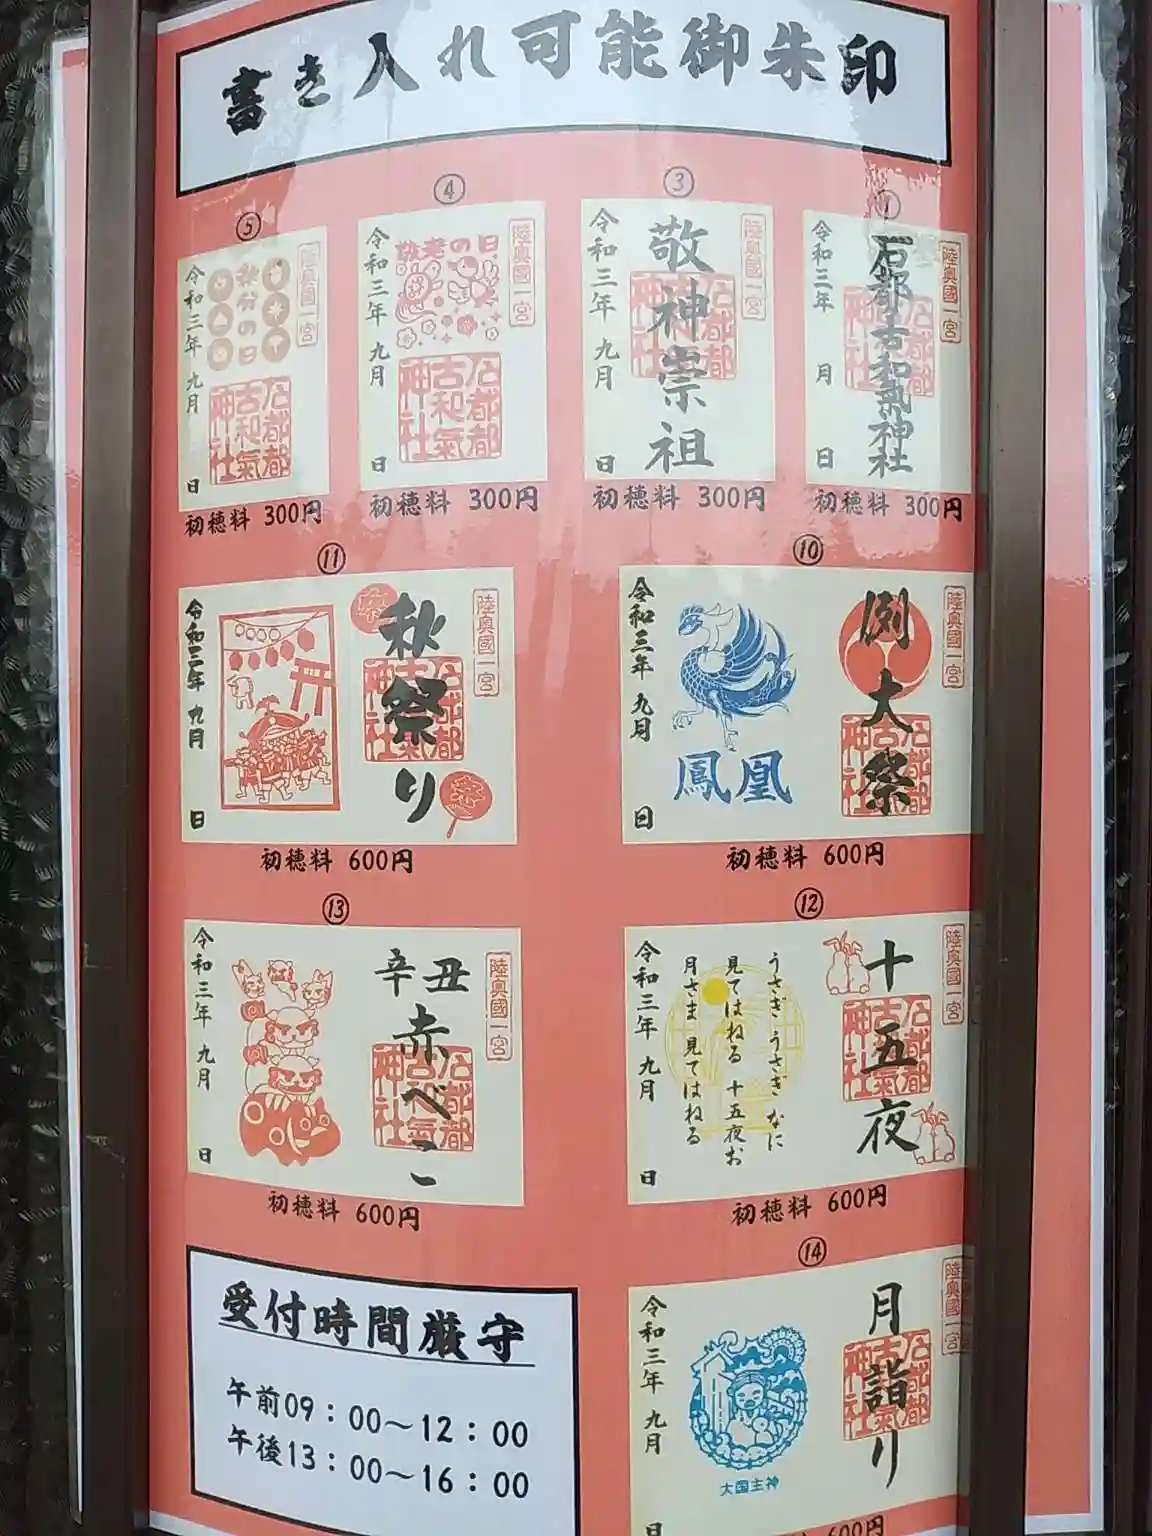 書き入れ可能御朱印
①
陸奥國一宮
石都々古和氣神社
令和三年 月 日
初穂料 300円
③
陸奥國一宮
敬神崇祖
令和三年 九月 日
初穂料 300円
④
陸奥國一宮
敬老の日
令和三年 九月 日
初穂料 300円
⑤
陸奥國一宮
秋分の日
令和三年 九月 日
初穂料 300円
⑩
陸奥國一宮
例大祭
鳳凰
令和三年 九月 日
初穂料 600円
⑪
陸奥國一宮
秋祭り
祭
祭
令和三年 九月 日
初穂料 600円
⑫
陸奥國一宮
十五夜
うさぎ うさぎ なに
見てはねる 十五夜お
月さま 見てはねる
令和三年 九月 日
初穂料 600円
⑬
陸奥國一宮
辛丑
赤べこ
令和三年 九月 日
初穂料 600円
⑭
陸奥國一宮
月詣り
大国主神
令和三年 九月 日
初穂料 600円
受付時間厳守
午前09：00～12：00
午後13：00～16：00